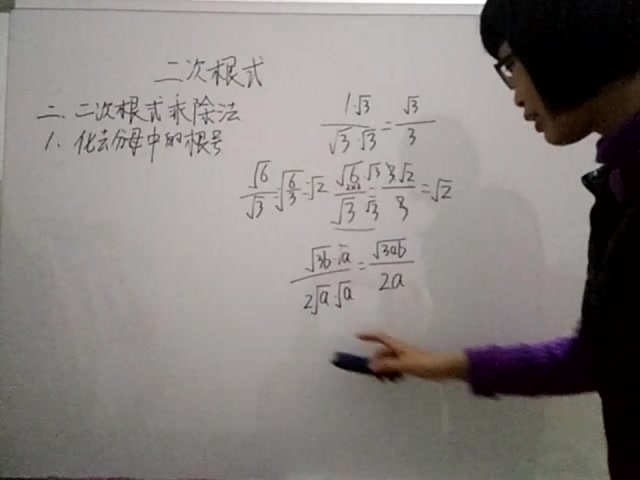 二次根式
二.二次根式乘除法
1.化去分母中的根号
1·√3 / √3·√3 = √3 / 3
√6 / √3 = √(6/3) = √2 √6·√3 / √3·√3 = 3√2 / 3 = √2
√3b·√a / 2√a·√a = √3ab / 2a